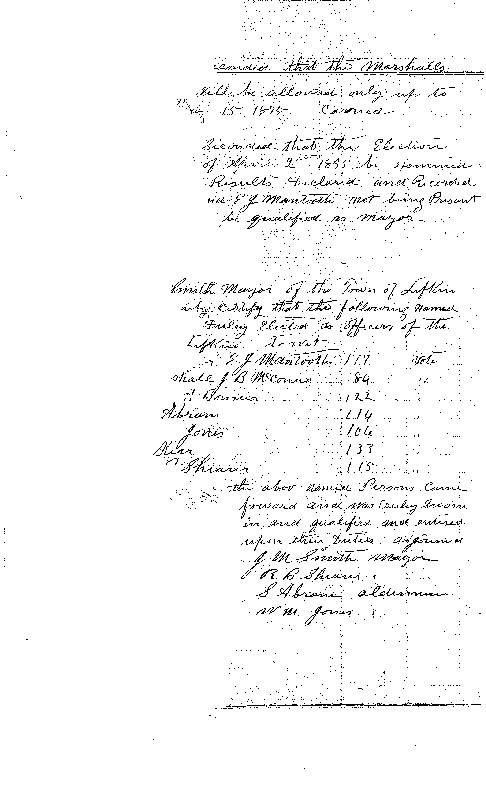 that the Marshalls
will be allowed only up to
15 1895 Carried
Seconded that the Election
of April 2nd 1895 be
Results declared and Recorded
E J Mantooth not being Present
be qualified as Mayor
Smith Mayor of the Town of Lufkin
Certify that the following named
Duley Elected as officers of the
Lufkin To wit
E J Mantooth 117 Vote
J B McConnico 84 "
Bonner 122
Abram 114
Jones 104
Kerr 133
Shearer 115
the abov named Persons Came
forward and was Duley Sworn
in and qualified and entered
upon their Duties adjourned
J M Smith Mayor
R B Shearer
S Abram alderman
W M Jones